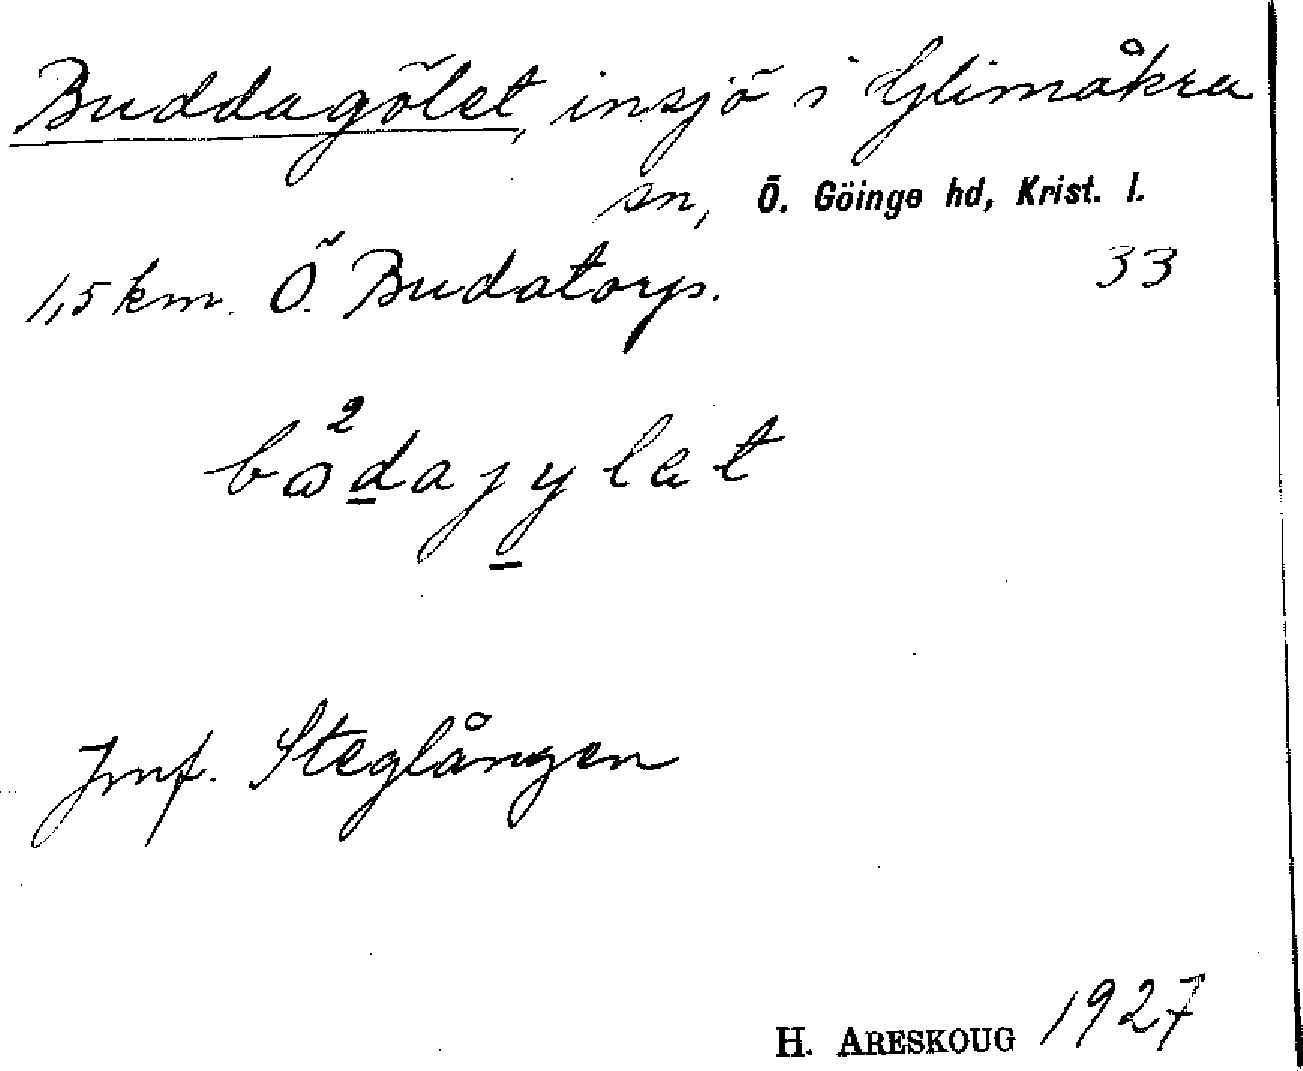 Buddagölet, insjö i Glimåkra
sn, Ö. Göinge hd, Krist. l.
1,5 km. Ö. Budatorp. 33
bω²dajylet
Imf. Steglången
H. ARESKOUG 1927